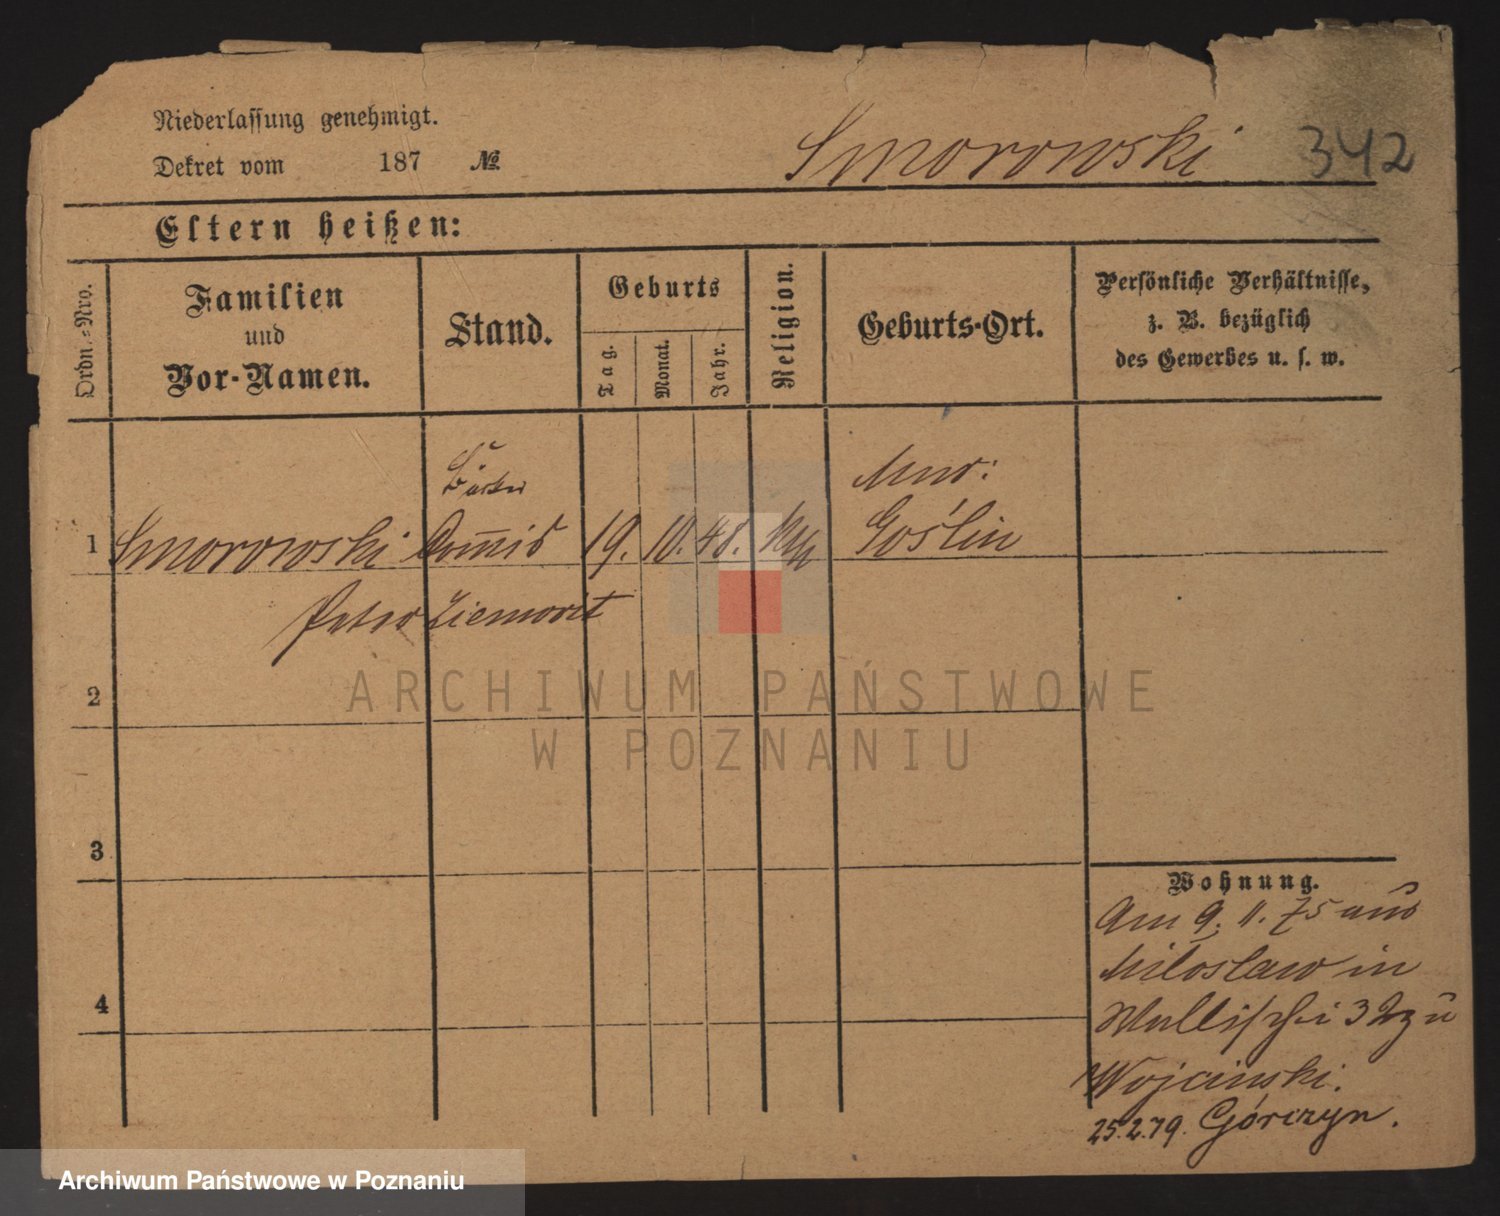 Niederlassung genehmigt.
Dekret vom 187 №
Smorowski 342
Eltern heißen:
Ordn.-Nro.
Familien
und
Vor-Namen.
Stand.
Geburts
Tag.
Monat.
Jahr.
Religion.
Geburts-Ort.
Persönliche Verhältnisse,
z. B. bezüglich
des Gewerbes u. s. w.
Mur:
1 Smorowski 19. 10. 48. Goślin
Peter
2
3
4
Wohnung.
Am 9. 11. 75 aus
Miloslaw in
3 zu
Wojcinski.
25.2.79. Górczyn.
ARCHIWUM PAŃSTWOWE
W POZNANIU
Archiwum Państwowe w Poznaniu